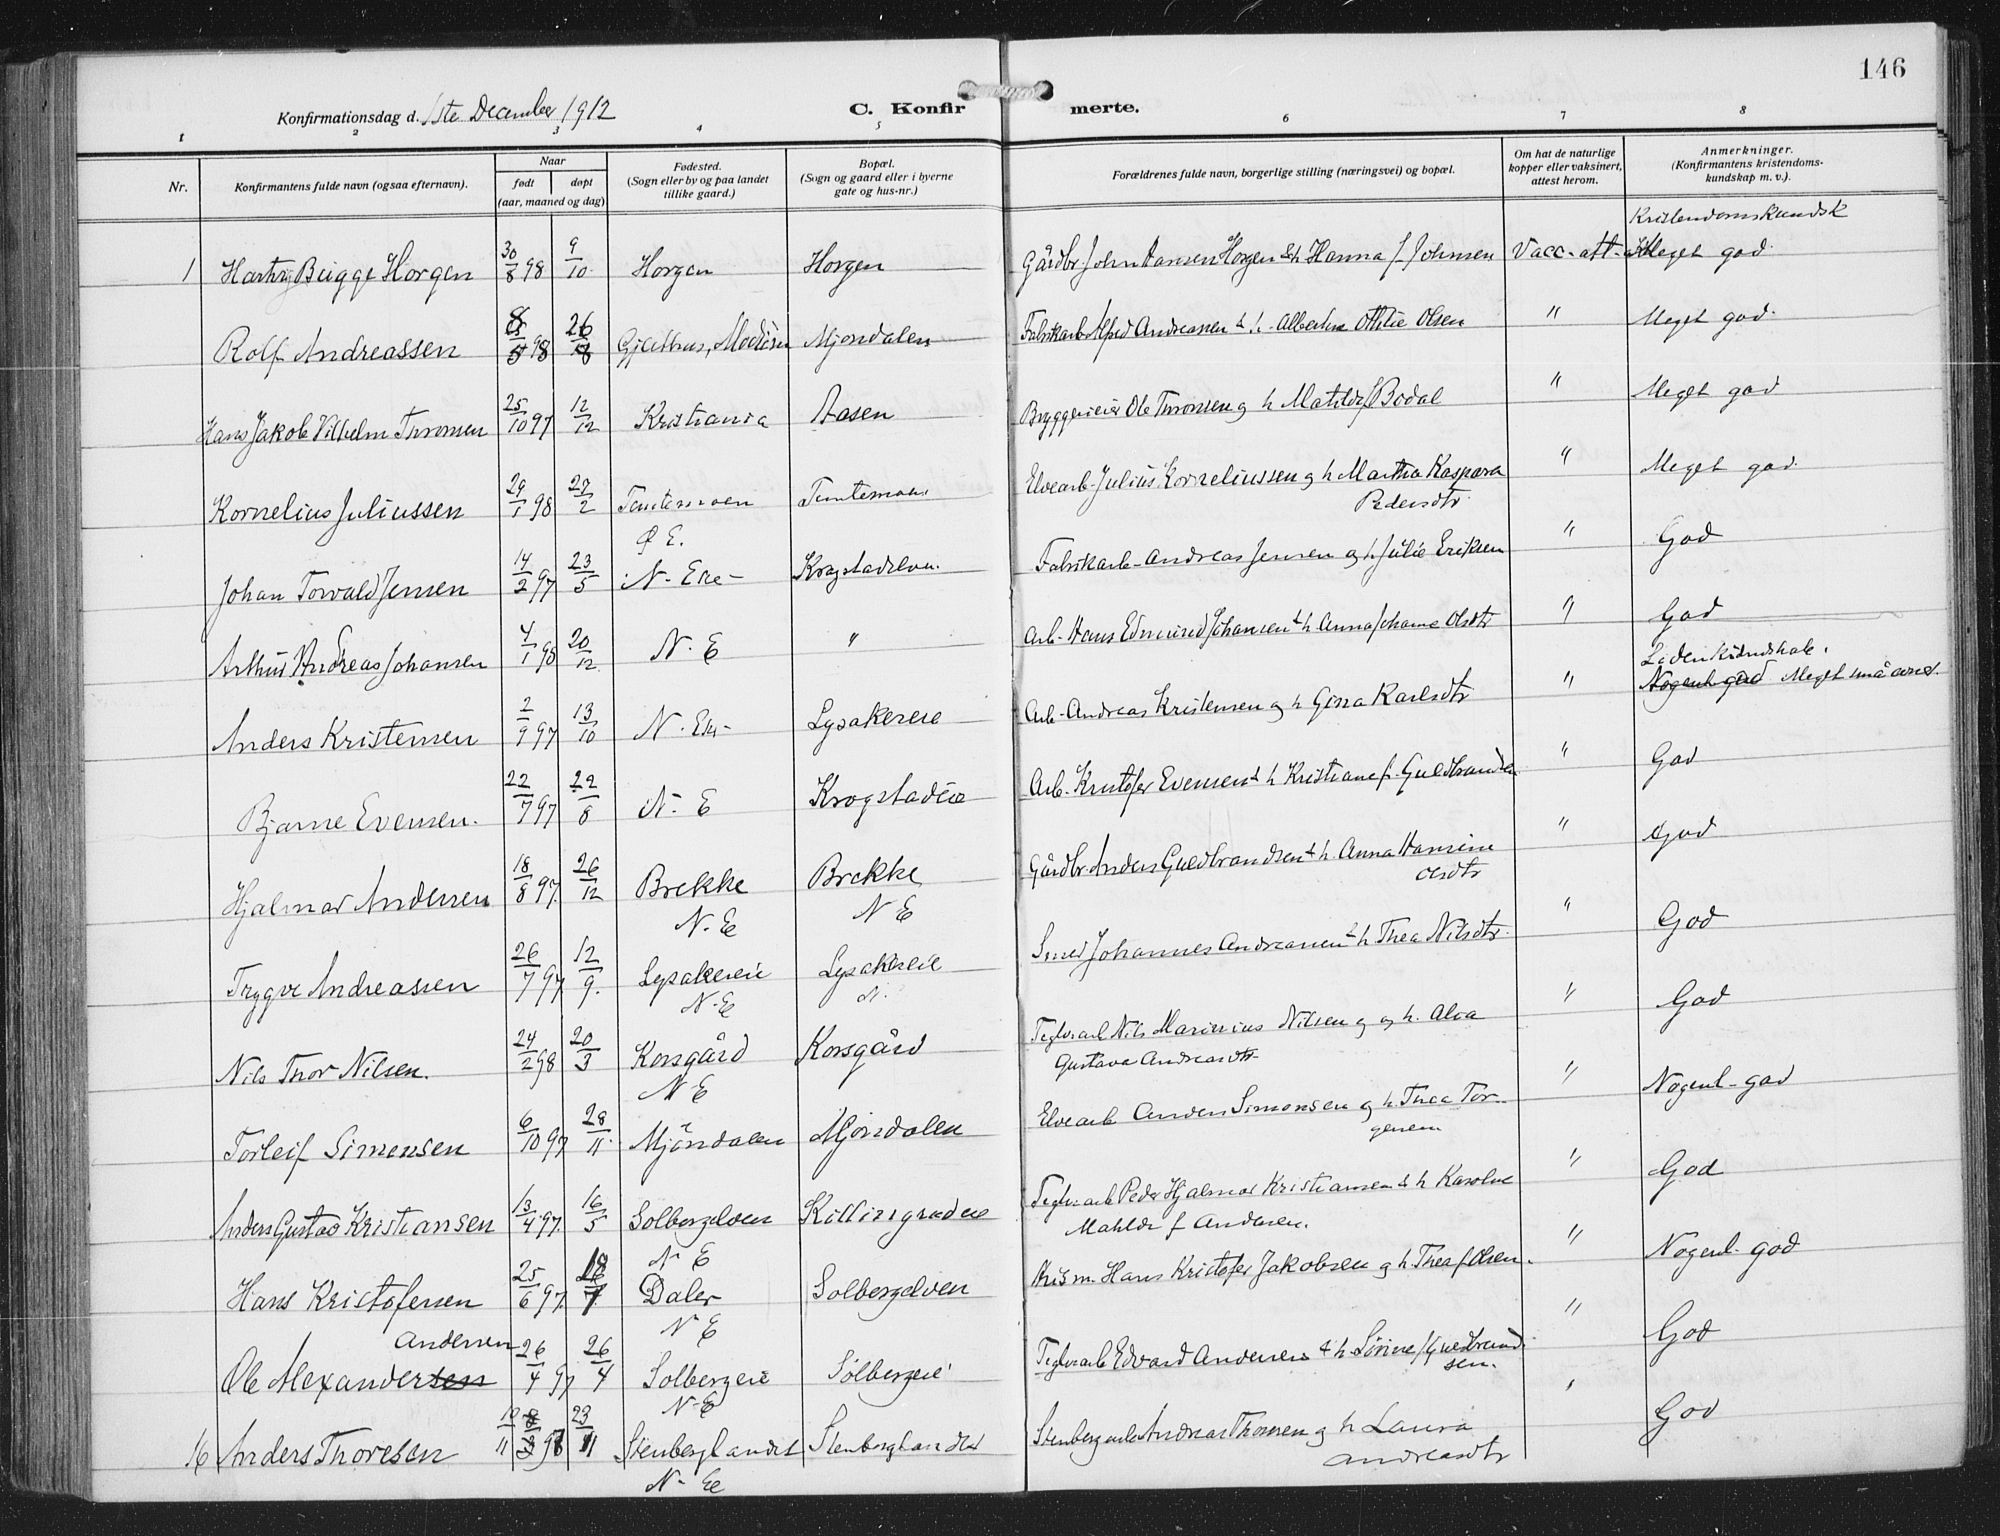 146
Konfirmationsdag d. 1ste December 1912
C. Konfirmerte.
1 2 3 4 5 6 7 8
Nr. Konfirmantens fulde navn (ogsaa efternavn). Naar født døpt (aar, maaned og dag) Fødested. (Sogn eller by og paa landet tillike gaard.) Bopæl. (Sogn og gaard eller i byerne gate og hus-nr.) Forældrenes fulde navn, borgerlige stilling (næringsvei) og bopæl. Om hat de naturlige kopper eller vaksinert, attest herom. Anmerkninger. (Konfirmantens kristendoms-kundskap m. v.).
Kristendomskundsk
1 Bugge Horgen 30/8 98 9/10 Horgen Horgen Gårdbr. John Hansen Horgen & h Hanna f Johnsen Vacc. att. Meget god.
Rolf Andreassen 98 26 Mjøndalen Fabrikarb. Alfred Andreassen & h. Othilie Olsen " Meget god.
Hans Jakob Vilhelm Thronsen 25/10 97 12/12 Kristiania Aasen Bryggerieier Ole Thronsen og h Matilde f Bodal " Meget god
Kornelius Juliussen 29/1 98 27/2 Elvearb. Julius Korneliussen og h Martha Kaspara
Pedersdtr.
" Meget god.
Ø E.
Johan Torvald Jensen 14/2 97 23/5 N. Eker Fabrikarb. Andreas Jensen og h. Julie Eriksen " God
Arthur Andreas Johansen 4/1 98 20/12 N. E " Arb. Hans Edmund Johansen & h Anna Johanne Olsdtr " God
Liden kundskab.
Anders Kristensen 2/9 97 13/10 N. Eker Lysakereie Arb. Andreas Kristensen og h Gina Karlsdtr " Nogenl. god Meget små evner.
Bjarne Evensen. 22/7 97 22/8 N. E Krogstadeie Arb. Kristofer Evensen & h Kristiane f. Guldbrandsen " God
Hjalmar Andersen 18/8 97 26/12 Brekke Brekke Gårdbr. Anders Guldbrandsen & h. Anna Hansine
Olsdtr
" God
N. E N E
Trygve Andreassen 26/7 97 12/9. Lysakereie Lysakereie Smed Johannes Andreassen & h Thea Nilsdtr. " God
N. E N.
Nils Thor Nilsen. 24/2 98 20/3 Korsgård Korsgård Teglv.arb Nils Marinius Nilsen og h. Alva
Gustava Andreasdtr
" God
N E
Torleif Simonsen 6/10 97 28/11. Mjöndalen Mjöndalen Elvearb Anders Simonsen og h. Thea Tor-
gersen
" Nogenl. god
Anders Gustav Kristiansen 13/4 97 16/5 Solbergelven Killingrudeie Teglv.arb Peder Hjalmar Kristiansen & h Karoline
Mathilde f Andersen.
" God
N E
Hans Kristofersen 25/6 97 18/7. Daler Solbergelven Hans Kristofer Jakobsen og h. Thea f Olsen. " Nogenl. god
N E
Andersen
Ole Alexandersen 26/4 97 26/4 Solbergeie Solbergeie Teglv.arb Edvard Andersen & h Sörine f Guldbrand-
sen.
" God
N. E
16 Anders Thoresen 10/11 97 23/11 Stenberglandet Stenberglandet Andreas Thoresen og h Laura
Andreasdtr
" God
N. E